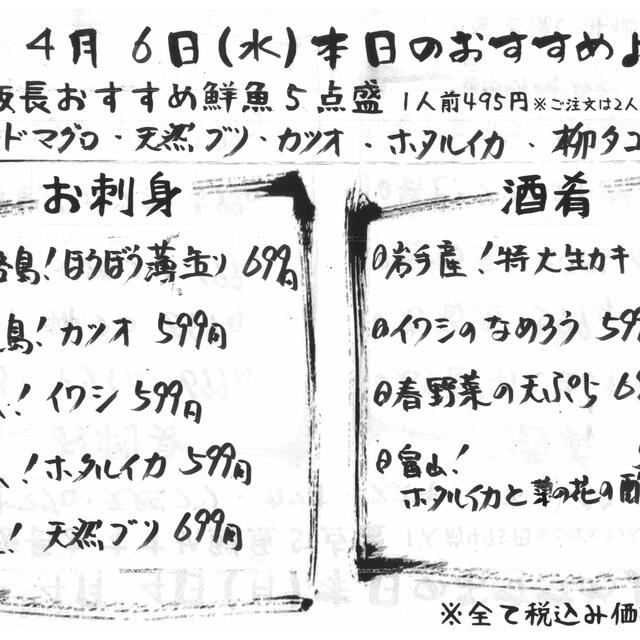 4月 6日(水)本日のおすすめ
板長おすすめ鮮魚5点盛 1人前495円 ※ご注文は2人
ドマグロ・天然ブリ・カツオ・ホタルイカ・柳タコ
お刺身
島!ほうぼう薄造り 699円
島!カツオ 599円
!イワシ 599円
!ホタルイカ 599円
!天然ブリ 699円
酒肴
岩手産!特大生カキ
イワシのなめろう 599
春野菜の天ぷら 6
富山!
ホタルイカと菜の花の酢
※全て税込み価